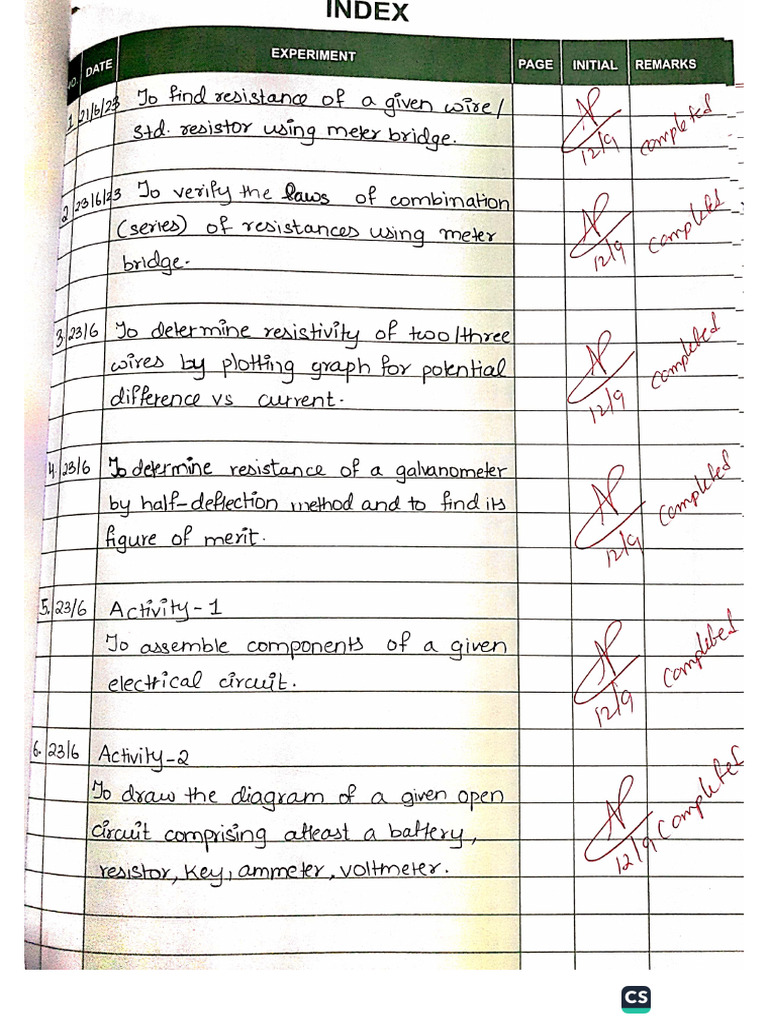 INDEX
NO. DATE EXPERIMENT PAGE INITIAL REMARKS
1 21/6/23 To find resistance of a given wire/
std. resistor using meter bridge.
12/9 completed
2 23/6/23 To verify the laws of combination
(series) of resistances using meter
bridge.
12/9 completed
3. 23/6 To determine resistivity of two/three
wires by plotting graph for potential
difference vs current.
12/9 completed
4. 23/6 To determine resistance of a galvanometer
by half-deflection method and to find its
figure of merit.
12/9 completed
5. 23/6 Activity-1
To assemble components of a given
electrical circuit.
12/9 completed
6. 23/6 Activity-2
To draw the diagram of a given open
circuit comprising atleast a battery,
resistor, key, ammeter, voltmeter.
12/9 completed
CS